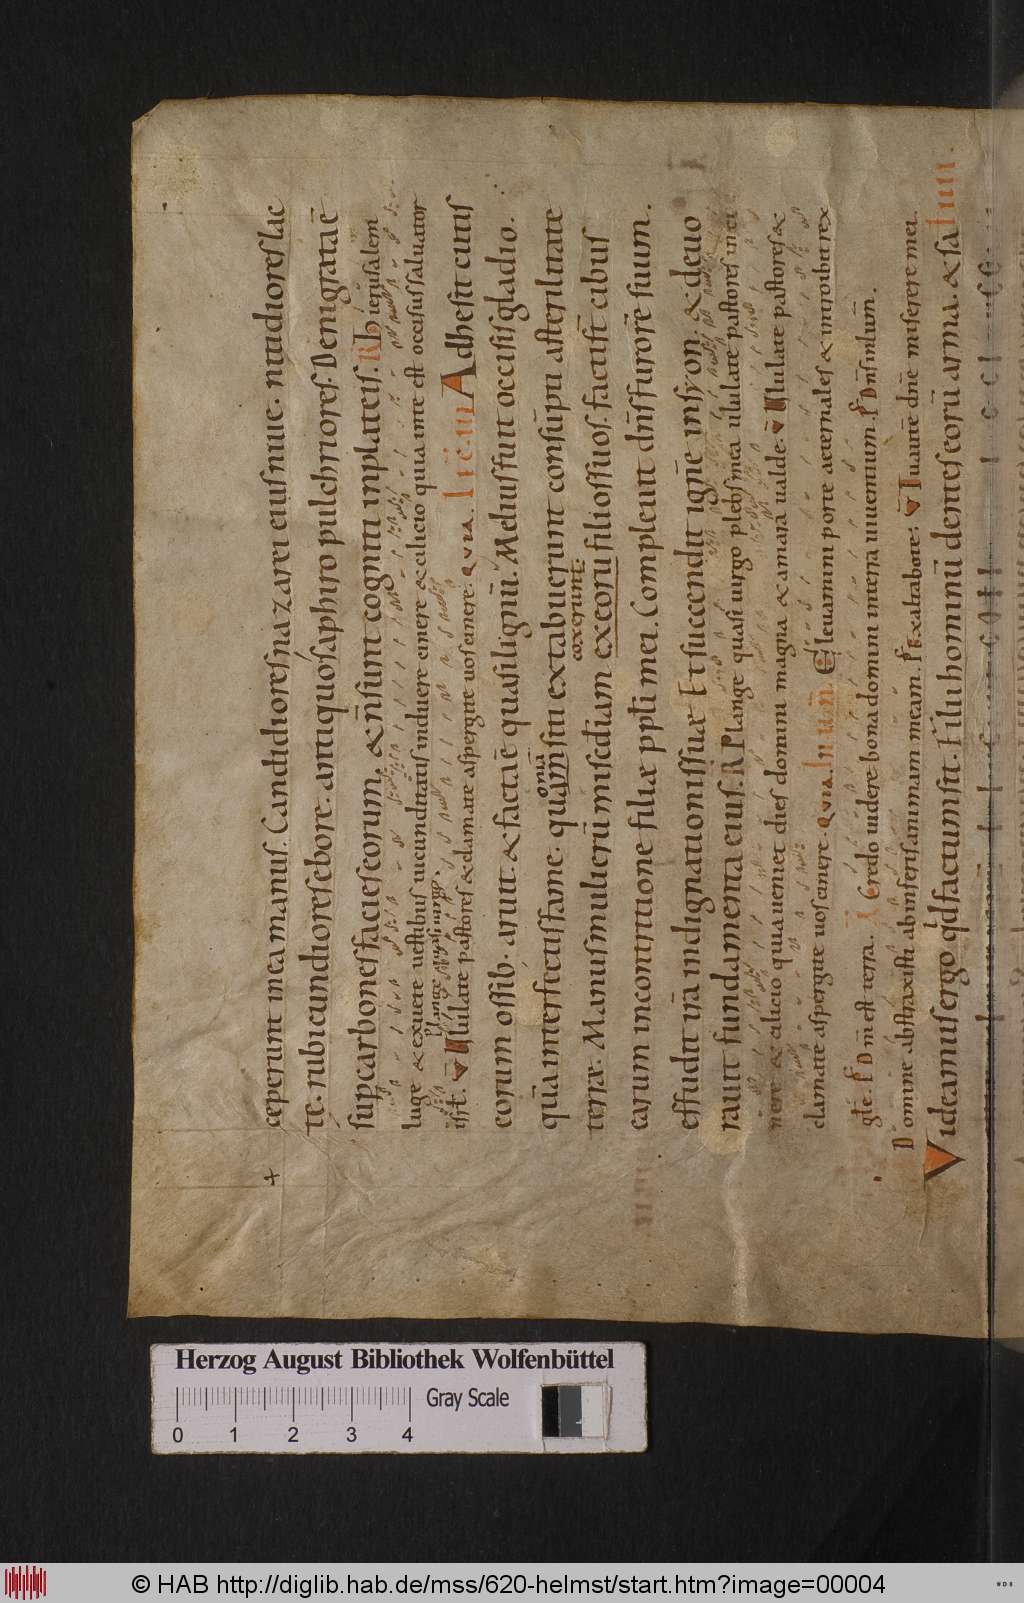 ceperunt in ea manus. Candidiores nazarei eius niue. nitidiores lac
te. rubicundiores ebore. antiquo saphiro pulchriores. Denigrata ē
sup carbones facies eorum. & n̄ sunt cogniti in plateis. R hierusalem
luge & exuete uestibus iucunditatis induere cinere & cilicio quia in te est occisus saluator
Plange quasi uirgo.
isrł. V Ululate pastores & clamate aspergite uos cinere. QVIA. Lec. III Adhesit cutis
eorum ossib. aruit & facta ē quasi lignū. Melius fuit occisis gladio.
quā interfectis fame. quam isti extabuerunt consūpti a sterilitate
oniā
coxerunt.
terræ. Manus mulierū misc̄diam excoru filios suos. facti sūt cibus
earum in contritione filiæ ppli mei. Compleuit dn̄s furorē suum.
effudit irā indignationis suæ Et succendit ignē in syon. & deuo
rauit fundamenta eius. R Plange quasi uirgo plebs mea ululate pastores in ci
nere & cilicio quia ueniet dies domini magna & amara ualde. V Ululate pastores &
clamate aspergite uos cinere. QVIA. In IIN. Eleuamini porte aeternales & introibit rex
glē. P Dn̄i est terra. A Credo uidere bona domini in terra uiuentium. P Dn̄s inlum̄.
Domine abstraxisti ab inferis animam meam. P Exaltabo te. V Tu autē dn̄e miserere mei.
Videamus ergo qd factum sit. Filii hominū dentes eorū arma. & sa IIII.
Herzog August Bibliothek Wolfenbüttel
Gray Scale
0 1 2 3 4
© HAB http://diglib.hab.de/mss/620-helmst/start.htm?image=00004